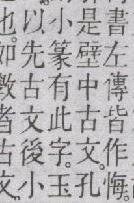 書左傳皆作悔
是壁中古文。孔
小篆有此字。玉
以先古文後小
也。如者古文